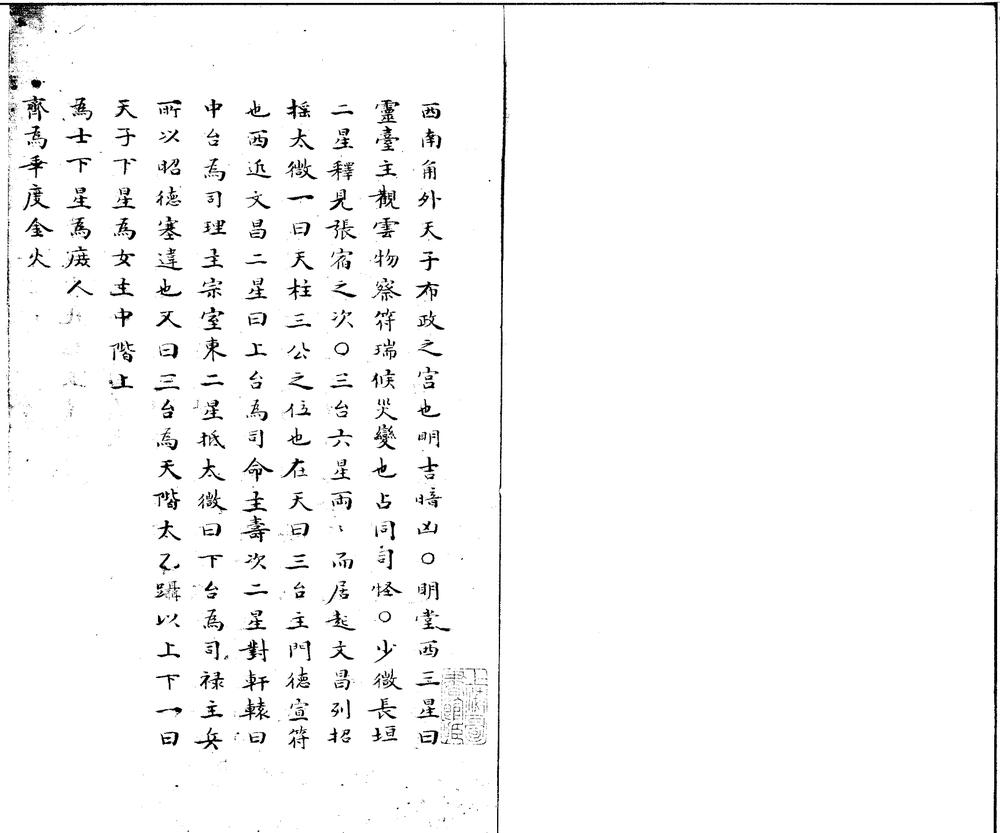 西南角外天子布政之宫也明吉暗凶〇明堂西三星曰
靈臺主觀雲物察符瑞候災變也占同司怪〇少微長垣
二星釋見張宿之次〇三台六星兩〻而居起文昌列招
揺太微一曰天柱三公之位也在天曰三台主開德宣符
也西近文昌二星曰上台為司命主壽次二星對軒轅曰
中台為司理主宗室東二星抵太微曰下台為司禄主兵
所以昭德塞違也又曰三台為天階太乙躡以上下一曰
天子下星為女主中階上
為士下星為庶人
齊為乖度金火